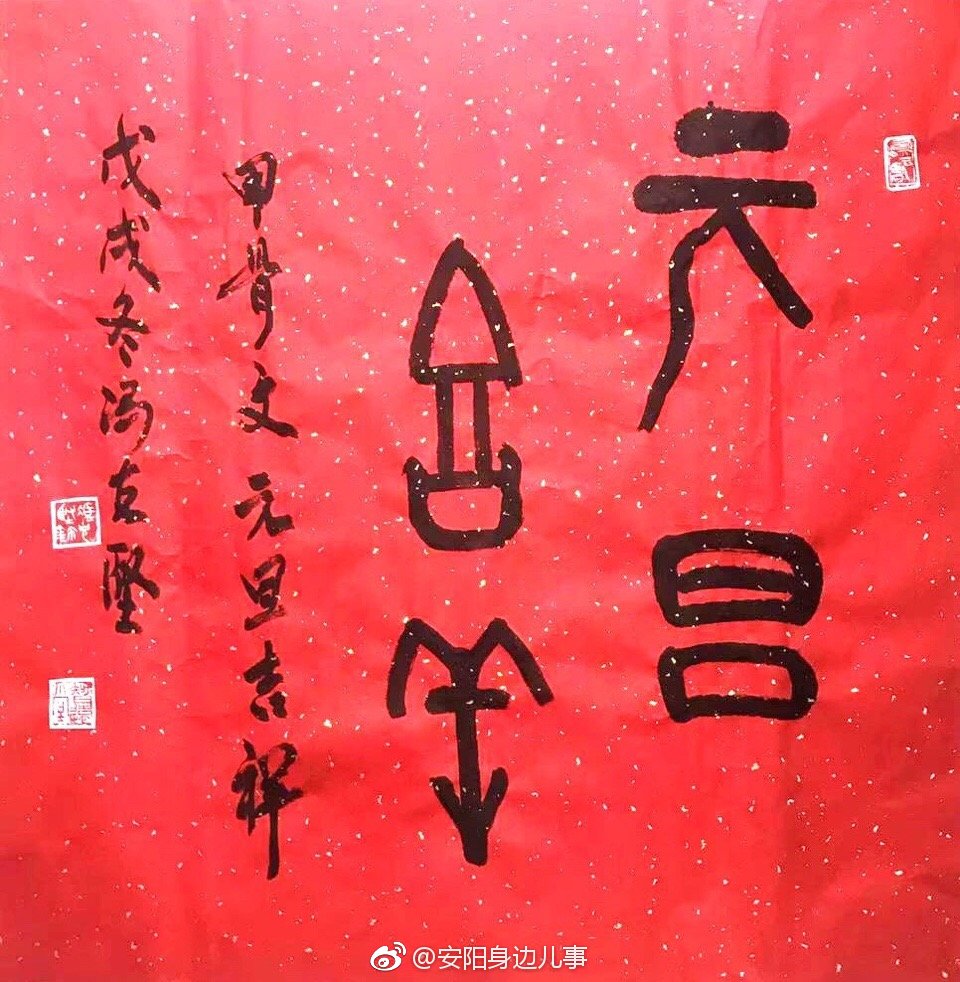 元旦
吉祥
甲骨文 元旦吉祥
戊戌冬 冯克坚
@安阳身边儿事